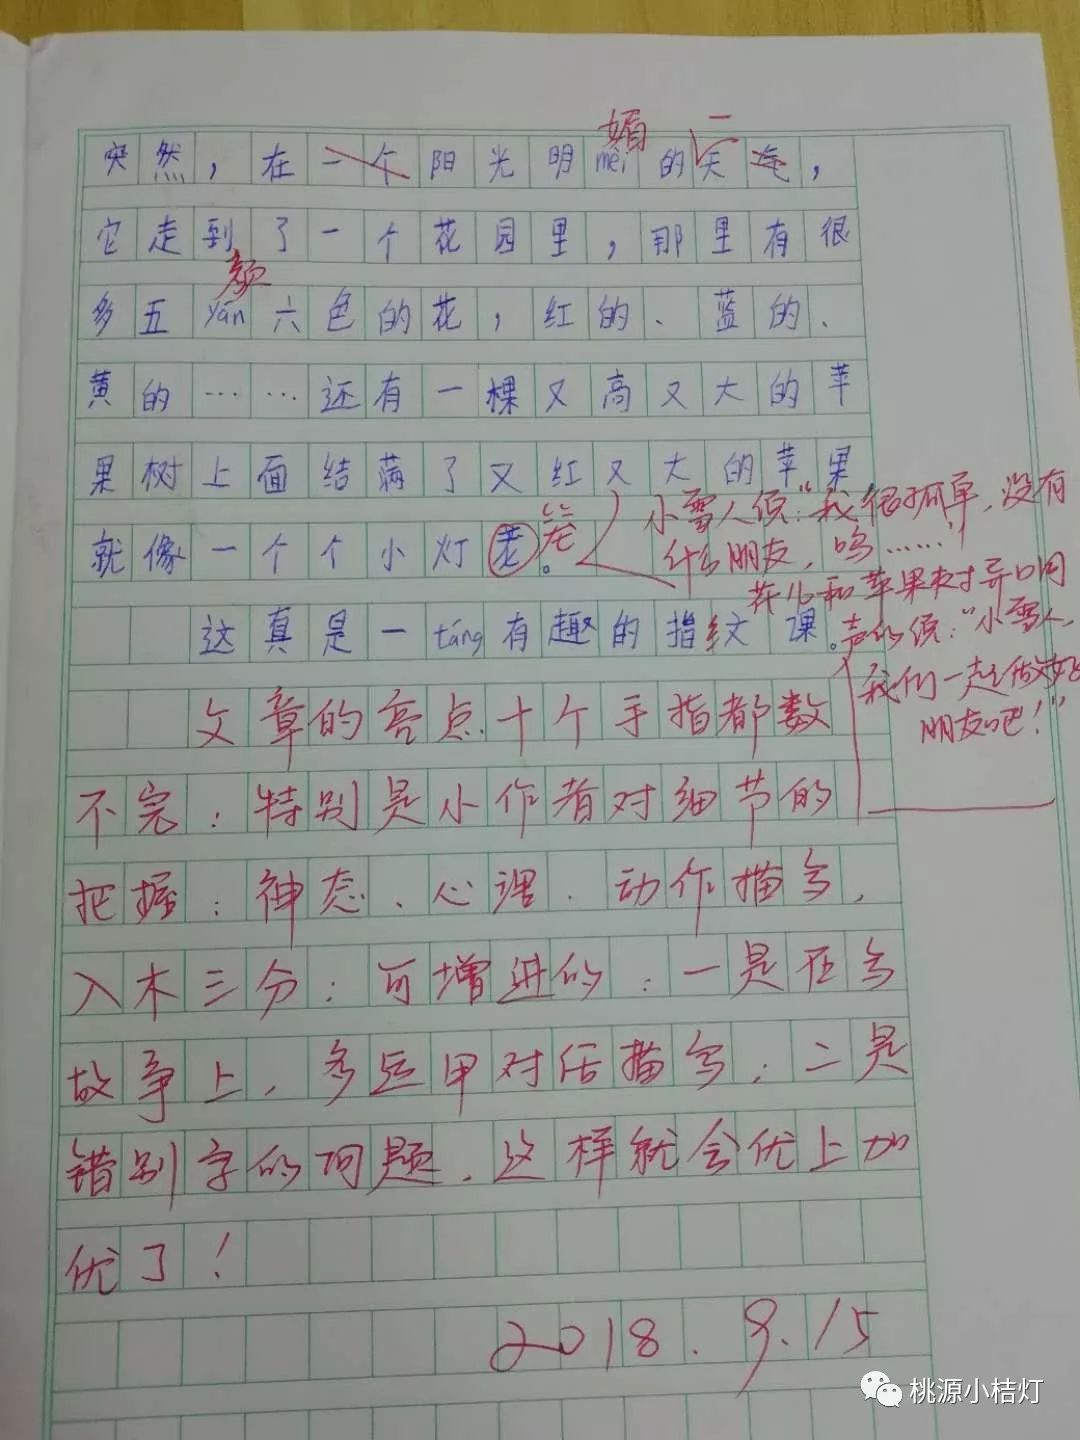 媚 一
突然，在一个阳光明mèi的天气，
它走到了一个花园里，那里有很
颜
多五yán六色的花，红的、蓝的、
黄的……还有一棵又高又大的苹
果树上面结满了又红又大的苹果
就像一个个小灯老。笼
小雪人须：“我很孤单，没有
什么朋友，呜……”
花儿和苹果树异口同
声的须：“小雪人，
我们一起做好
朋友吧！”
这真是一táng有趣的指纹课。
文章的亮点十个手指都数
不完：特别是小作者对细节的
把握：神态、心理、动作描写，
入木三分；可增进的：一是在写
故事上，多运用对话描写；二是
错别字的问题，这样就会优上加
优了！
2018.9.15
桃源小桔灯